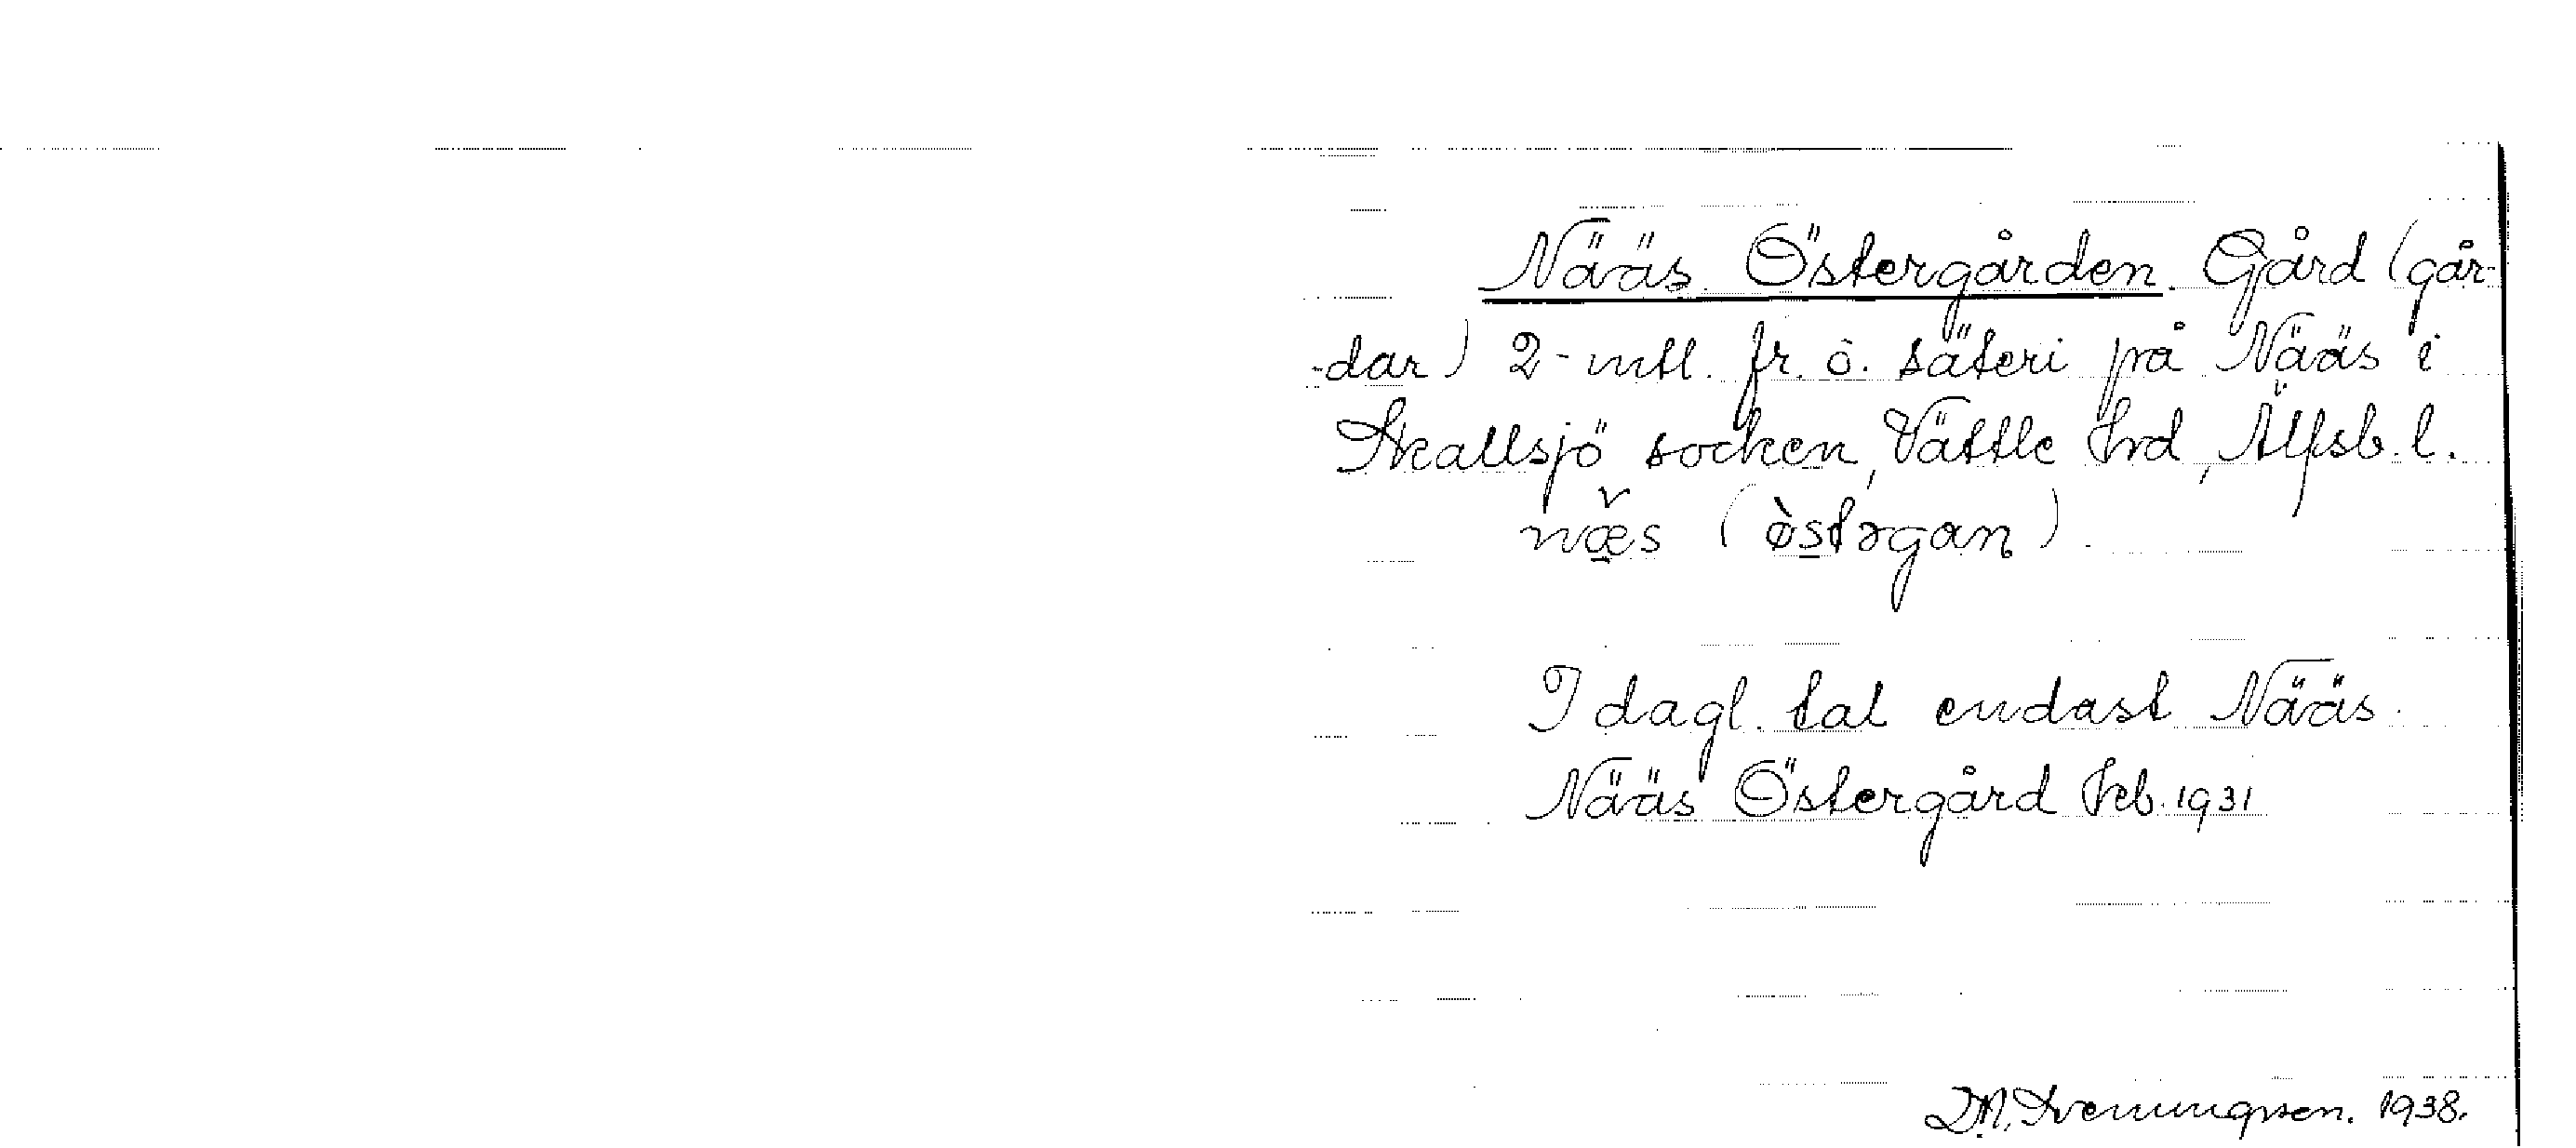 Nääs Östergården. Gård (går-
-dar) 2 - mtl. fr. o. säteri på Nääs i
Skallsjö socken, Vättle Hrd, Älfsb. l.
næ̌s (ø̀stərgan)
I dagl. tal endast Nääs.
Nääs Östergård Jrb. 1931
1938.